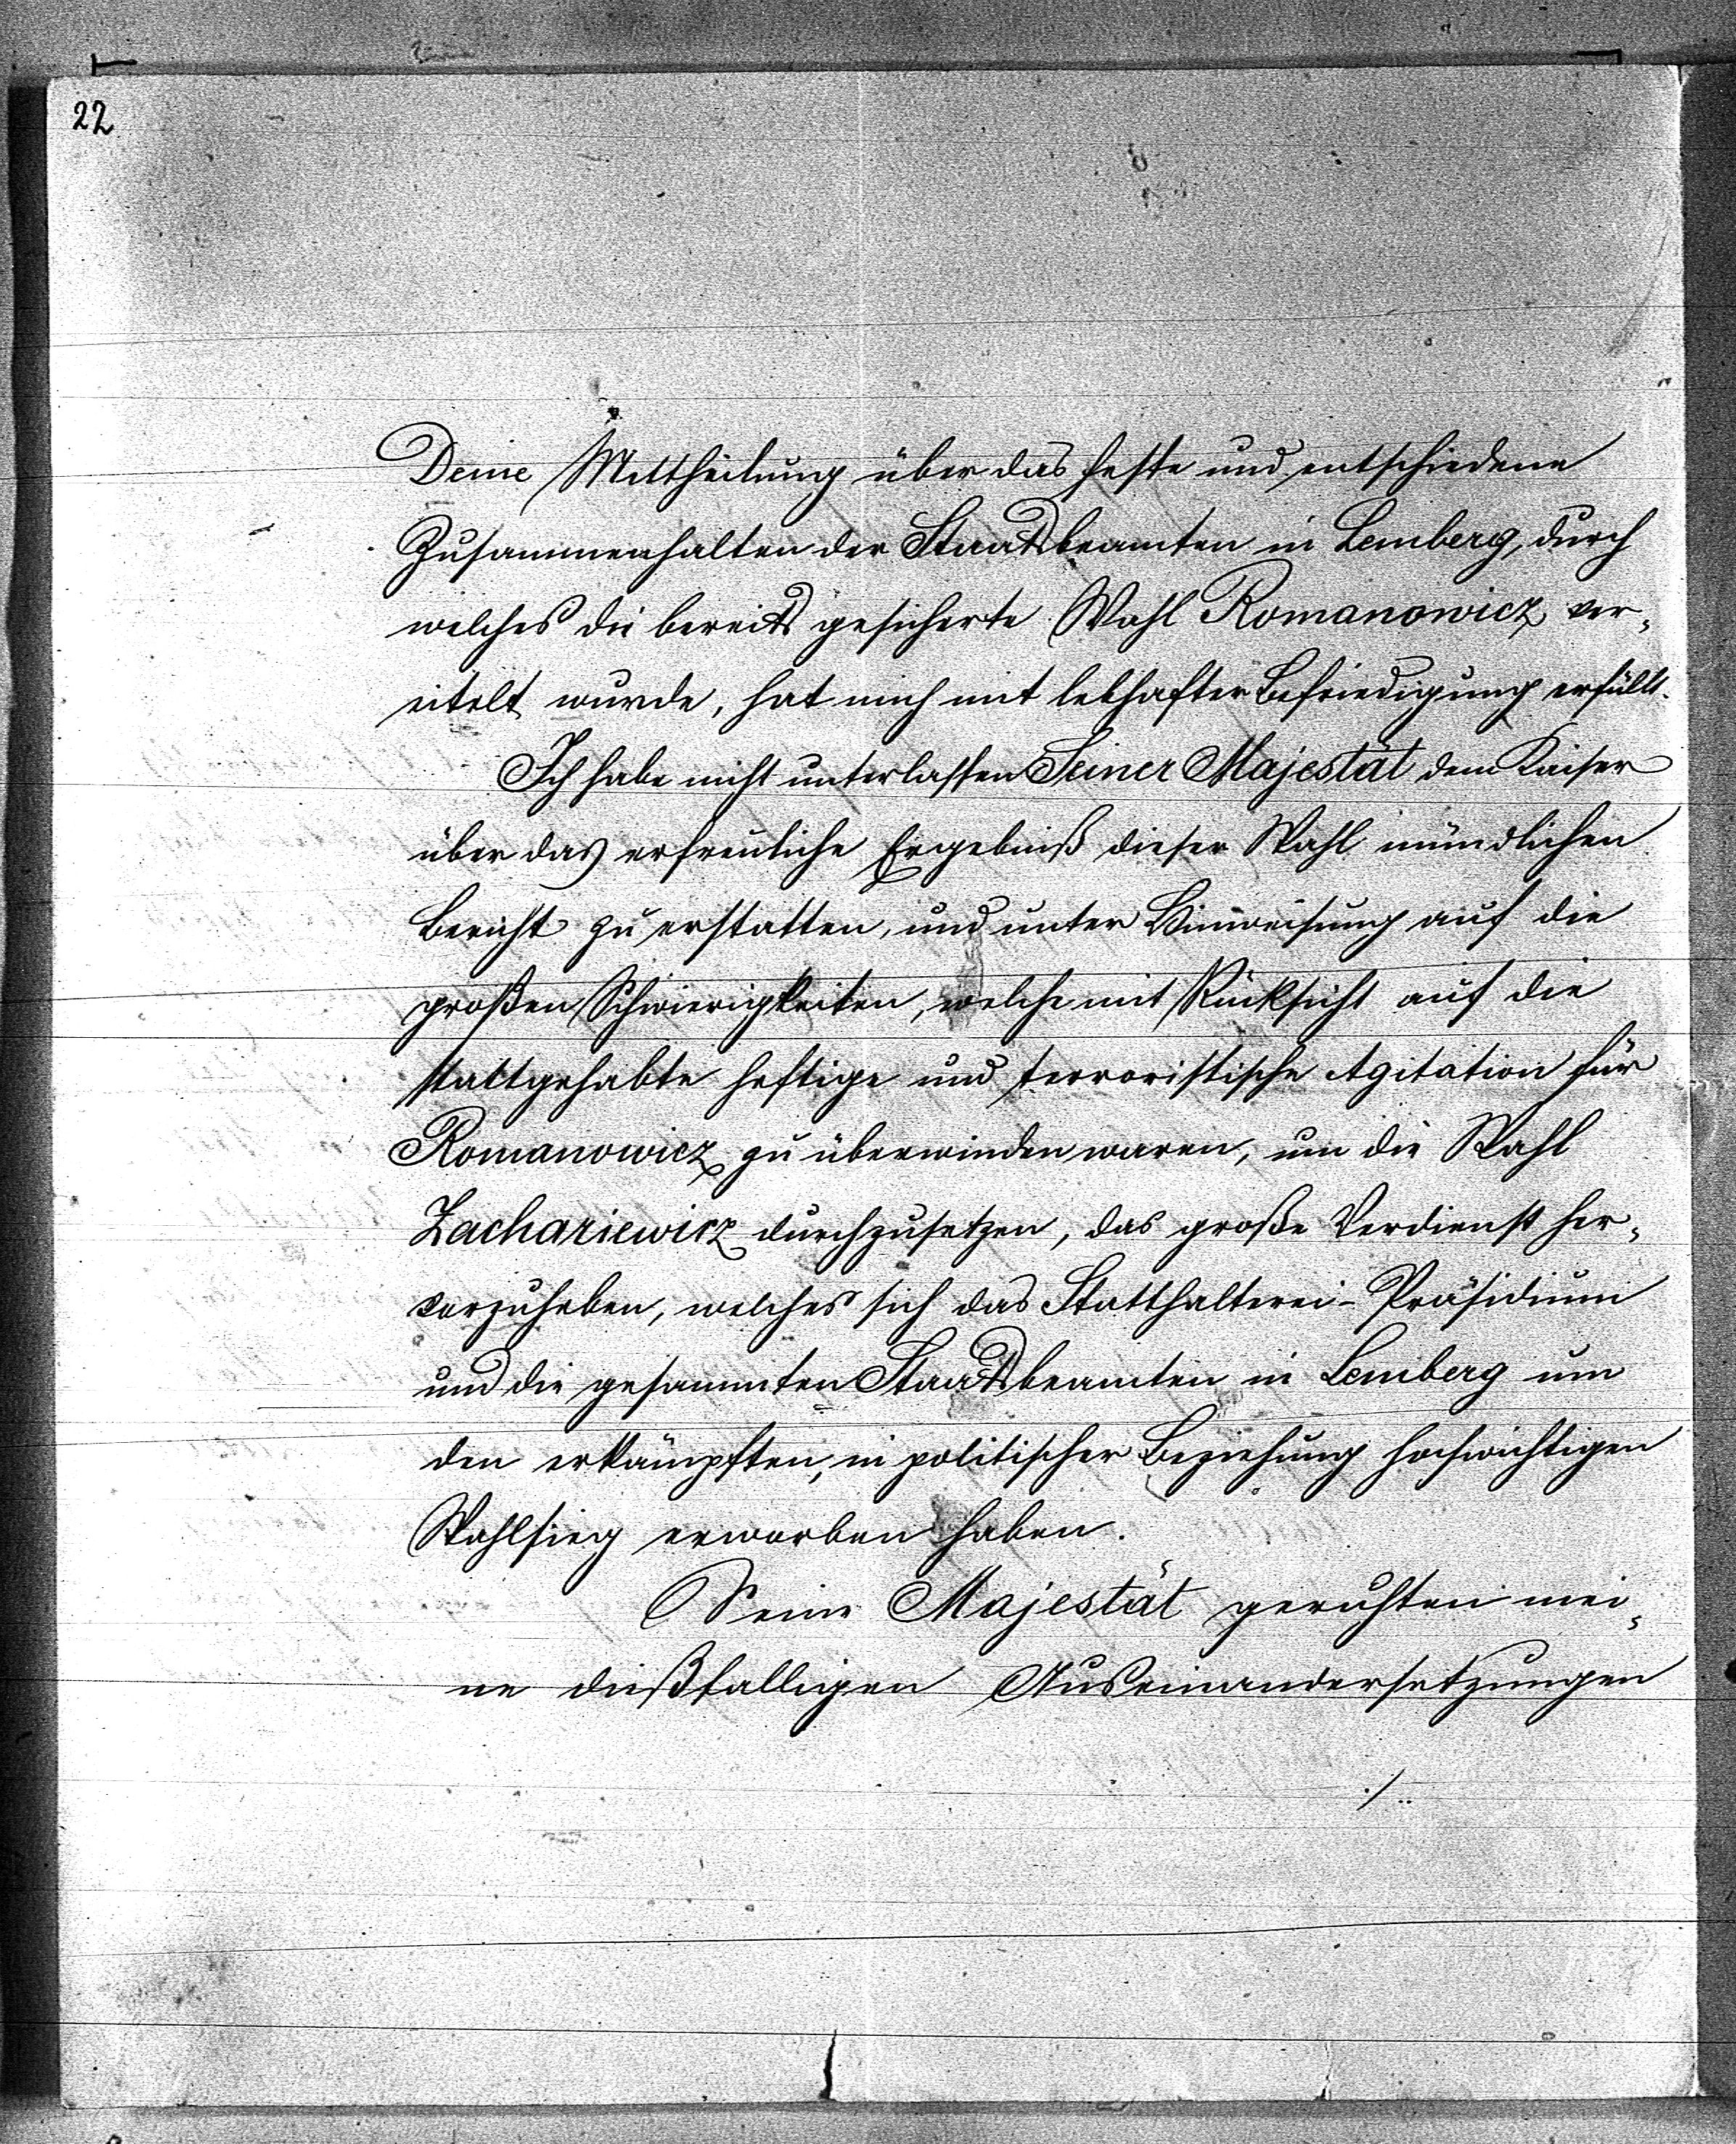 22
Deine Mittheilung über das feste und entschiedene
Zusammenhalten der Staatsbeamten in Lemberg, durch
welches die bereits gesicherte Wahl Romanowicz ver-
eitelt wurde, hat mich mit lebhafter Befriedigung erfüllt.
Ich habe nicht unterlassen Seiner Majestät dem Kaiser
über das erfreuliche Ergebniß dieser Wahl mündlichen
Bericht zu erstatten, und unter Hinweisung auf die
großen Schwierigkeiten, welche mit Rücksicht auf die
stattgehabte heftige und terroristische Agitation für
Romanowicz zu überwinden waren, um die Wahl
Zachariewicz durchzusetzen, das große Verdienst her-
vorzuheben, welches sich das Statthalterei-Präsidium
und die gesammten Staatsbeamten in Lemberg um
den erkämpften, in politischer Beziehung hochwichtigen
Wahlsieg erworben haben.
Seine Majestät geruhten mei-
ne dießfälligen Auseinandersetzungen
./..